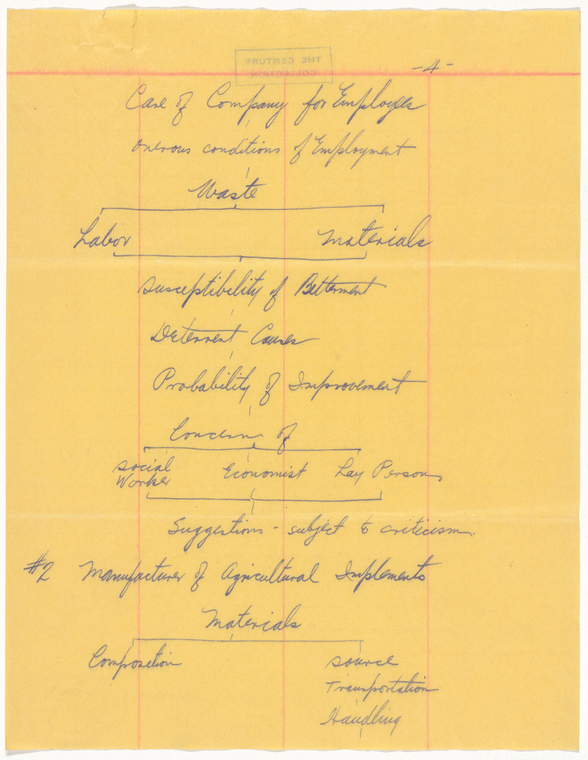 THE CENTURY
COLLECTION
-4-
Care of Company for Employes
Onerous conditions of Employment
Waste
Labor Materials
Susceptibility of Betterment
Deterrent Causes
Probability of Improvement
Concern of
Social Worker Economist Lay Persons
Suggestions - subject to criticism.
#2 Manufacturer of Agricultural Implements
Materials
Composition Source
Transportation
Handling